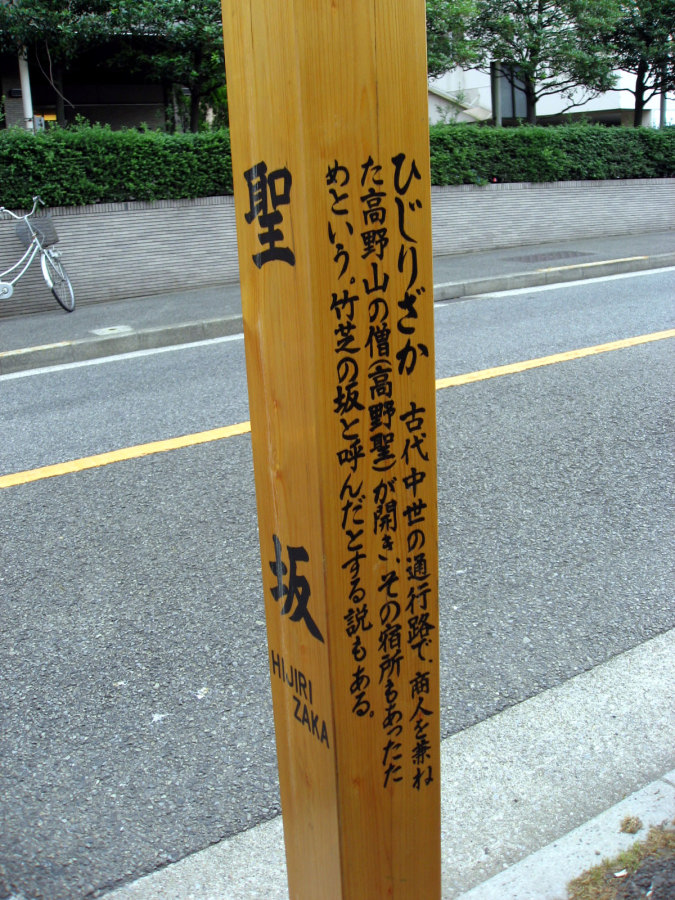 聖坂
HIJIRI
ZAKA
ひじりざか 古代中世の通行路で、商人を兼ね
た高野山の僧(高野聖)が開き、その宿所もあったた
めという。竹芝の坂と呼んだとする説もある。